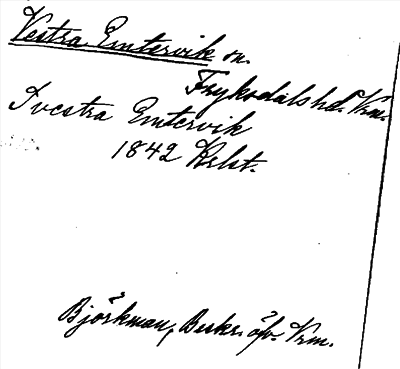 Vestra Emtervik sn.
Fryksdals hd. Vrm.
I vestra Emtervik
1842 Krlst.
Björkman, Beskr. öfv. Vrm.